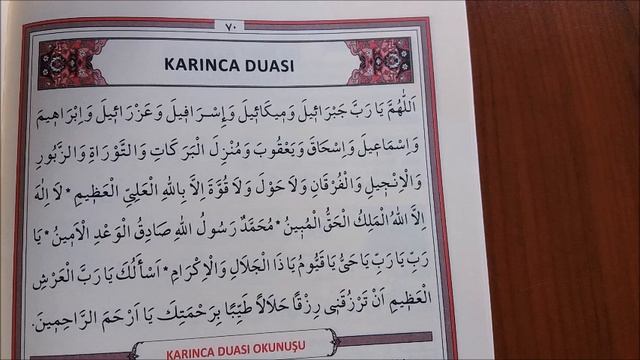 ٧٠
KARINCA DUASI
اَللّٰهُمَّ يَا رَبَّ جَبْرَائِيلَ وَمِيكَائِيلَ وَاِسْرَافِيلَ وَعَزْرَائِيلَ وَاِبْرَاهِيمَ
وَاِسْمَاعِيلَ وَاِسْحَاقَ وَيَعْقُوبَ وَمُنْزِلَ الْبَرَكَاتِ وَالتَّوْرَاةِ وَالزَّبُورِ
وَالْاِنْجِيلِ وَالْفُرْقَانِ وَلَا حَوْلَ وَلَا قُوَّةَ اِلَّا بِاللهِ الْعَلِيِّ الْعَظِيمِ * لَا اِلٰهَ
اِلَّا اللهُ الْمَلِكُ الْحَقُّ الْمُبِينُ * مُحَمَّدٌ رَسُولُ اللهِ صَادِقُ الْوَعْدِ الْاَمِينُ * يَا
رَبِّ يَا رَبِّ يَا حَيُّ يَا قَيُّومُ يَا ذَا الْجَلَالِ وَالْاِكْرَامِ * اَسْأَلُكَ يَا رَبَّ الْعَرْشِ
الْعَظِيمِ اَنْ تَرْزُقَنِي رِزْقًا حَلَالًا طَيِّبًا بِرَحْمَتِكَ يَا اَرْحَمَ الرَّاحِمِينَ.
KARINCA DUASI OKUNUŞU